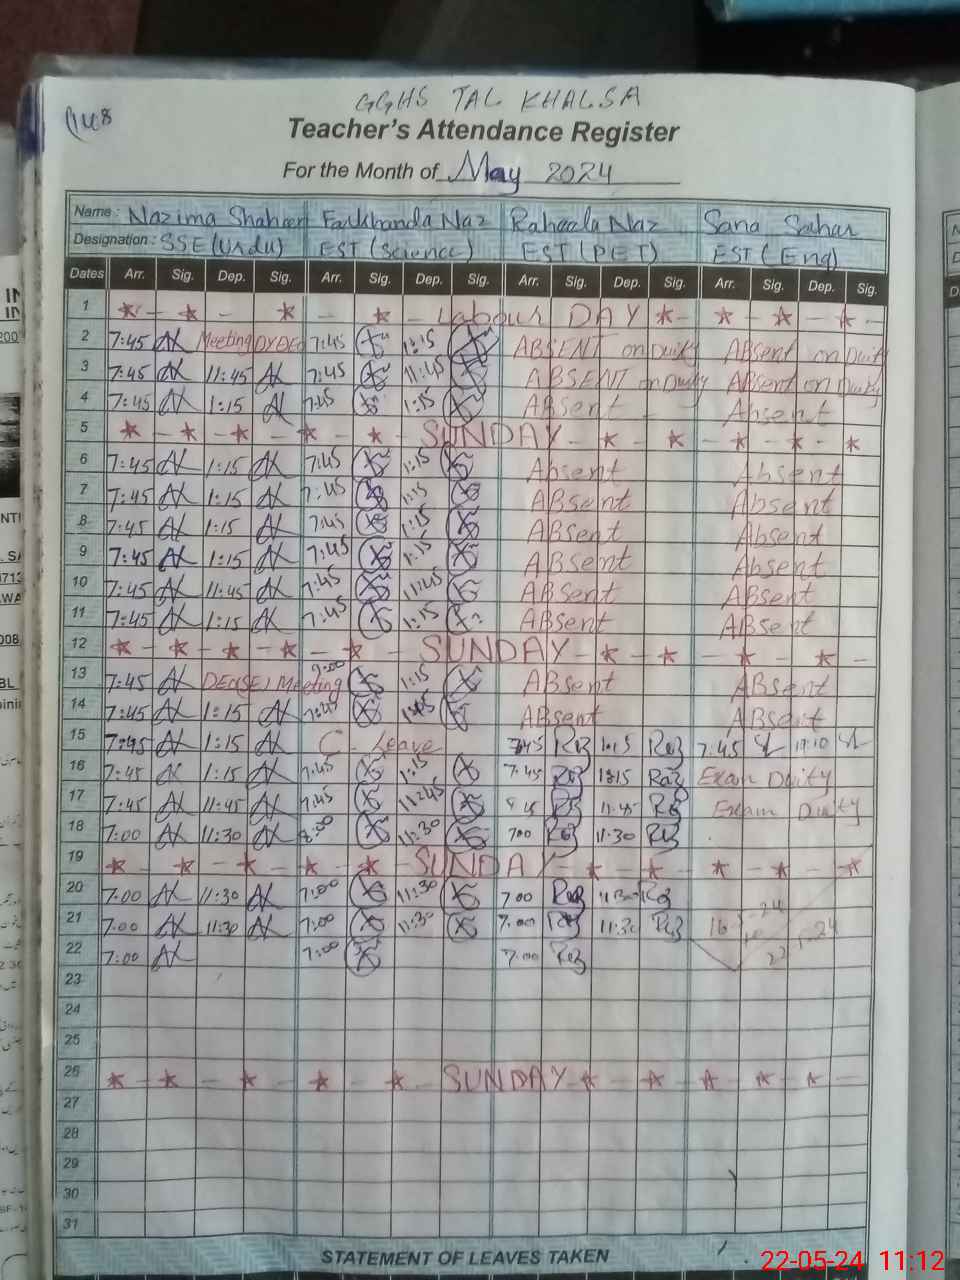 GGHS TAL KHALSA
Teacher's Attendance Register
For the Month of May 2024
Name: Nazima Shaheen Farkhanda Naz Raheela Naz Sana Sahar
Designation: SSE (Urdu) EST (Science) EST (PET) EST (Eng)
Dates Arr. Sig. Dep. Sig. Arr. Sig. Dep. Sig. Arr. Sig. Dep. Sig. Arr. Sig. Dep. Sig.
1 Labour DAY
2 7:45 Meeting DYDEO 7:45 1:15 ABSENT on Duity ABsent on Duity
3 7:45 11:45 7:45 11:45 ABSENT on Duity ABsent on Duity
4 7:45 1:15 7:45 1:15 ABsent Absent
5 SUNDAY
6 7:45 1:15 7:45 1:15 Absent Absent
7 7:45 1:15 7:45 1:15 ABsent Absent
8 7:45 1:15 7:45 1:15 ABsent Absent
9 7:45 1:15 7:45 1:15 ABsent Absent
10 7:45 11:45 7:45 11:45 ABsent ABsent
11 7:45 1:15 7:45 1:15 ABsent ABsent
12 SUNDAY
13 7:45 Meeting 9:00 1:15 ABsent ABsent
14 7:45 1:15 7:45 ABsent ABsent
15 7:45 1:15 C. Leave 7:45 1:15 7:45
16 7:45 1:15 7:45 1:15 7:45 1:15 Exam Duity
17 7:45 11:45 7:45 11:45 11:45 Exam Duity
18 7:00 11:30 8:00 11:30 700 11:30
19 SUNDAY
20 7:00 11:30 7:00 11:30 700 11:30
21 7:00 11:30 7:00 11:30 7:00 11:30
22 7:00 7:00 7:00
23
24
25
26 SUNDAY
27
28
29
30
31
STATEMENT OF LEAVES TAKEN
22-05-24 11:12